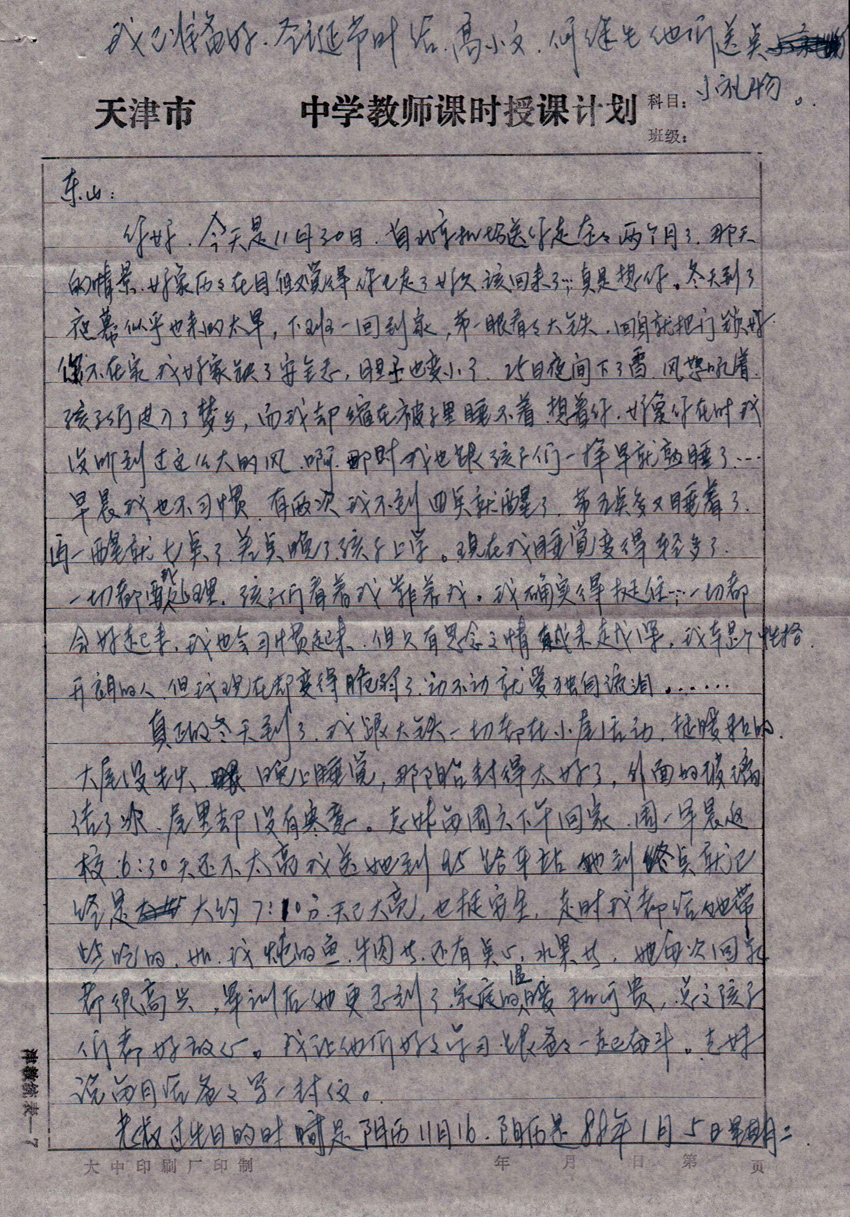 我已准备好.圣诞节时给.高小文.何继先他们送点
小礼物。
天津市 中学教师课时授课计划 科目:
班级:
东山:
你好.今天是11月30日.自北京机场送你走应该两个月了.那天
的情景.好象历历在目但又觉得你已走了好久.该回来了…真是想你。冬天到了
夜幕似乎也来的太早,下班一回到家,第一眼看看大铁.回身就把门锁好
你不在家我好象缺了安全感,胆子也变小了.25日夜间下了雪.风怒吼着.
孩子们进入了梦乡,而我却缩在被子里睡不着.想着你.好象你在时我
没听到过这么大的风.啊.那时我也跟孩子们一样早就熟睡了…
早晨我也不习惯.有两次我不到四点就醒了.等五点多又睡着了.
再一醒就七点了.差点晚了孩子上学。现在我睡觉变得轻多了.
一切都要我处理.孩子们看着我靠着我。我确实得挺住…一切都
会好起来.我也会习惯起来.但只有思念之情越来越深.我本是个性格
开朗的人.但我现在却变得脆弱了.动不动就爱独自流泪。……
真正的冬天到了.我跟大铁一切都在小屋活动.挺暖和的.
大屋没生火.晚上睡觉,那阳台封得太好了,外面的玻璃
结了冰.屋里却没有寒意。志妹每周六下午回家.周一早晨返
校.6:30天还不太亮我送她到95路车站.她到终点就已
经是大约7:10分.天已大亮,也挺安全,走时我都给她带
些吃的.如.我炖的鱼.牛肉等.还有点心,水果等.她每次回家
都很高兴,军训后她更感到了家庭的温暖和可贵,总之孩子
们都好放心。我让他们好好学习跟爸爸一起奋斗。志妹
说每月给爸爸写一封信。
老叔过生日的时间是阴历11月16.阳历是88年1月5日星期二
津教统表—7
大中印刷厂印制 年 月 日 第 页